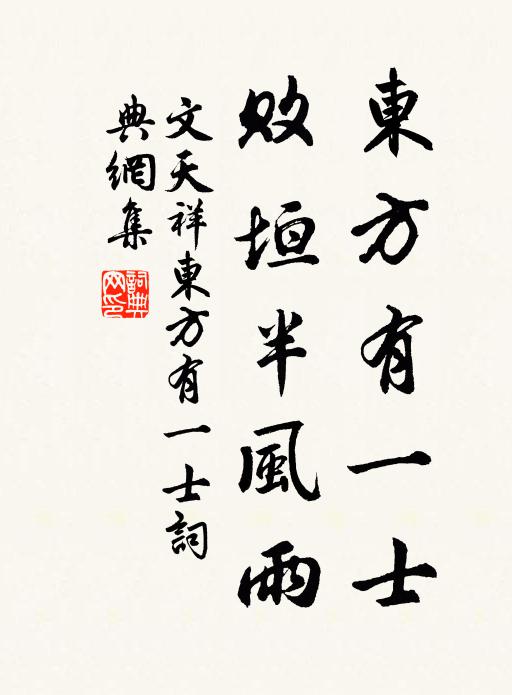 東方有一士
敗垣半風雨
文天祥東方有一士詞
典網集
詞典
网印